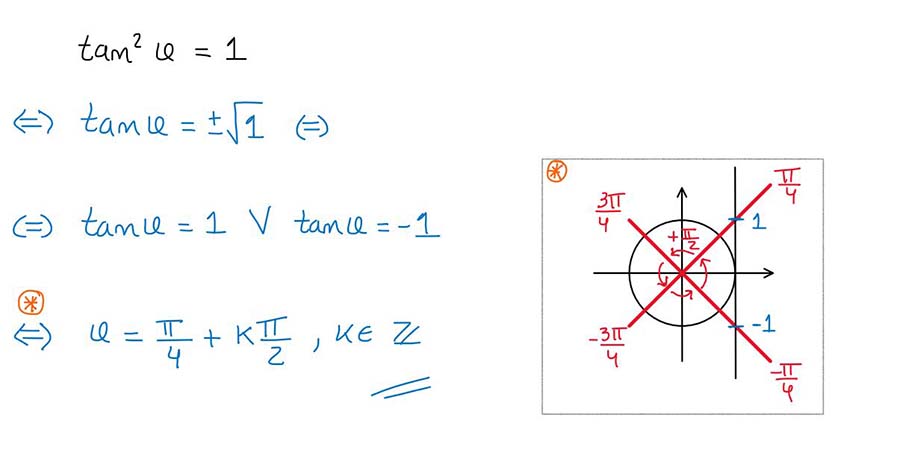 tan² φ = 1
⇔ tan φ = ±√1 ⇔
⇔ tan φ = 1 ∨ tan φ = -1
⊛
⇔ φ = π/4 + kπ/2 , k ∈ ℤ
⊛
3π/4
π/4
+π/2
1
-1
-3π/4
-π/4